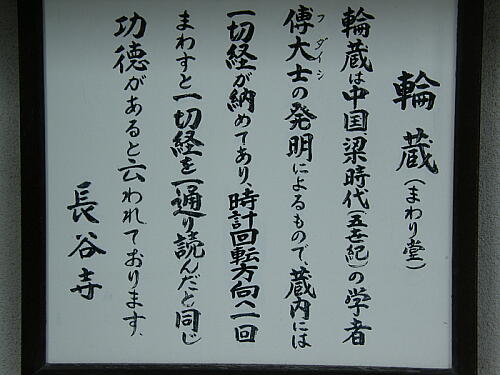 輪蔵（まわり堂）
輪蔵は中国梁時代（五世紀）の学者
傅大士の発明によるもので、蔵内には
フダイシ
一切経が納めてあり、時計回転方向へ一回
まわすと一切経を一通り読んだと同じ
功徳があると云われております。
長谷寺